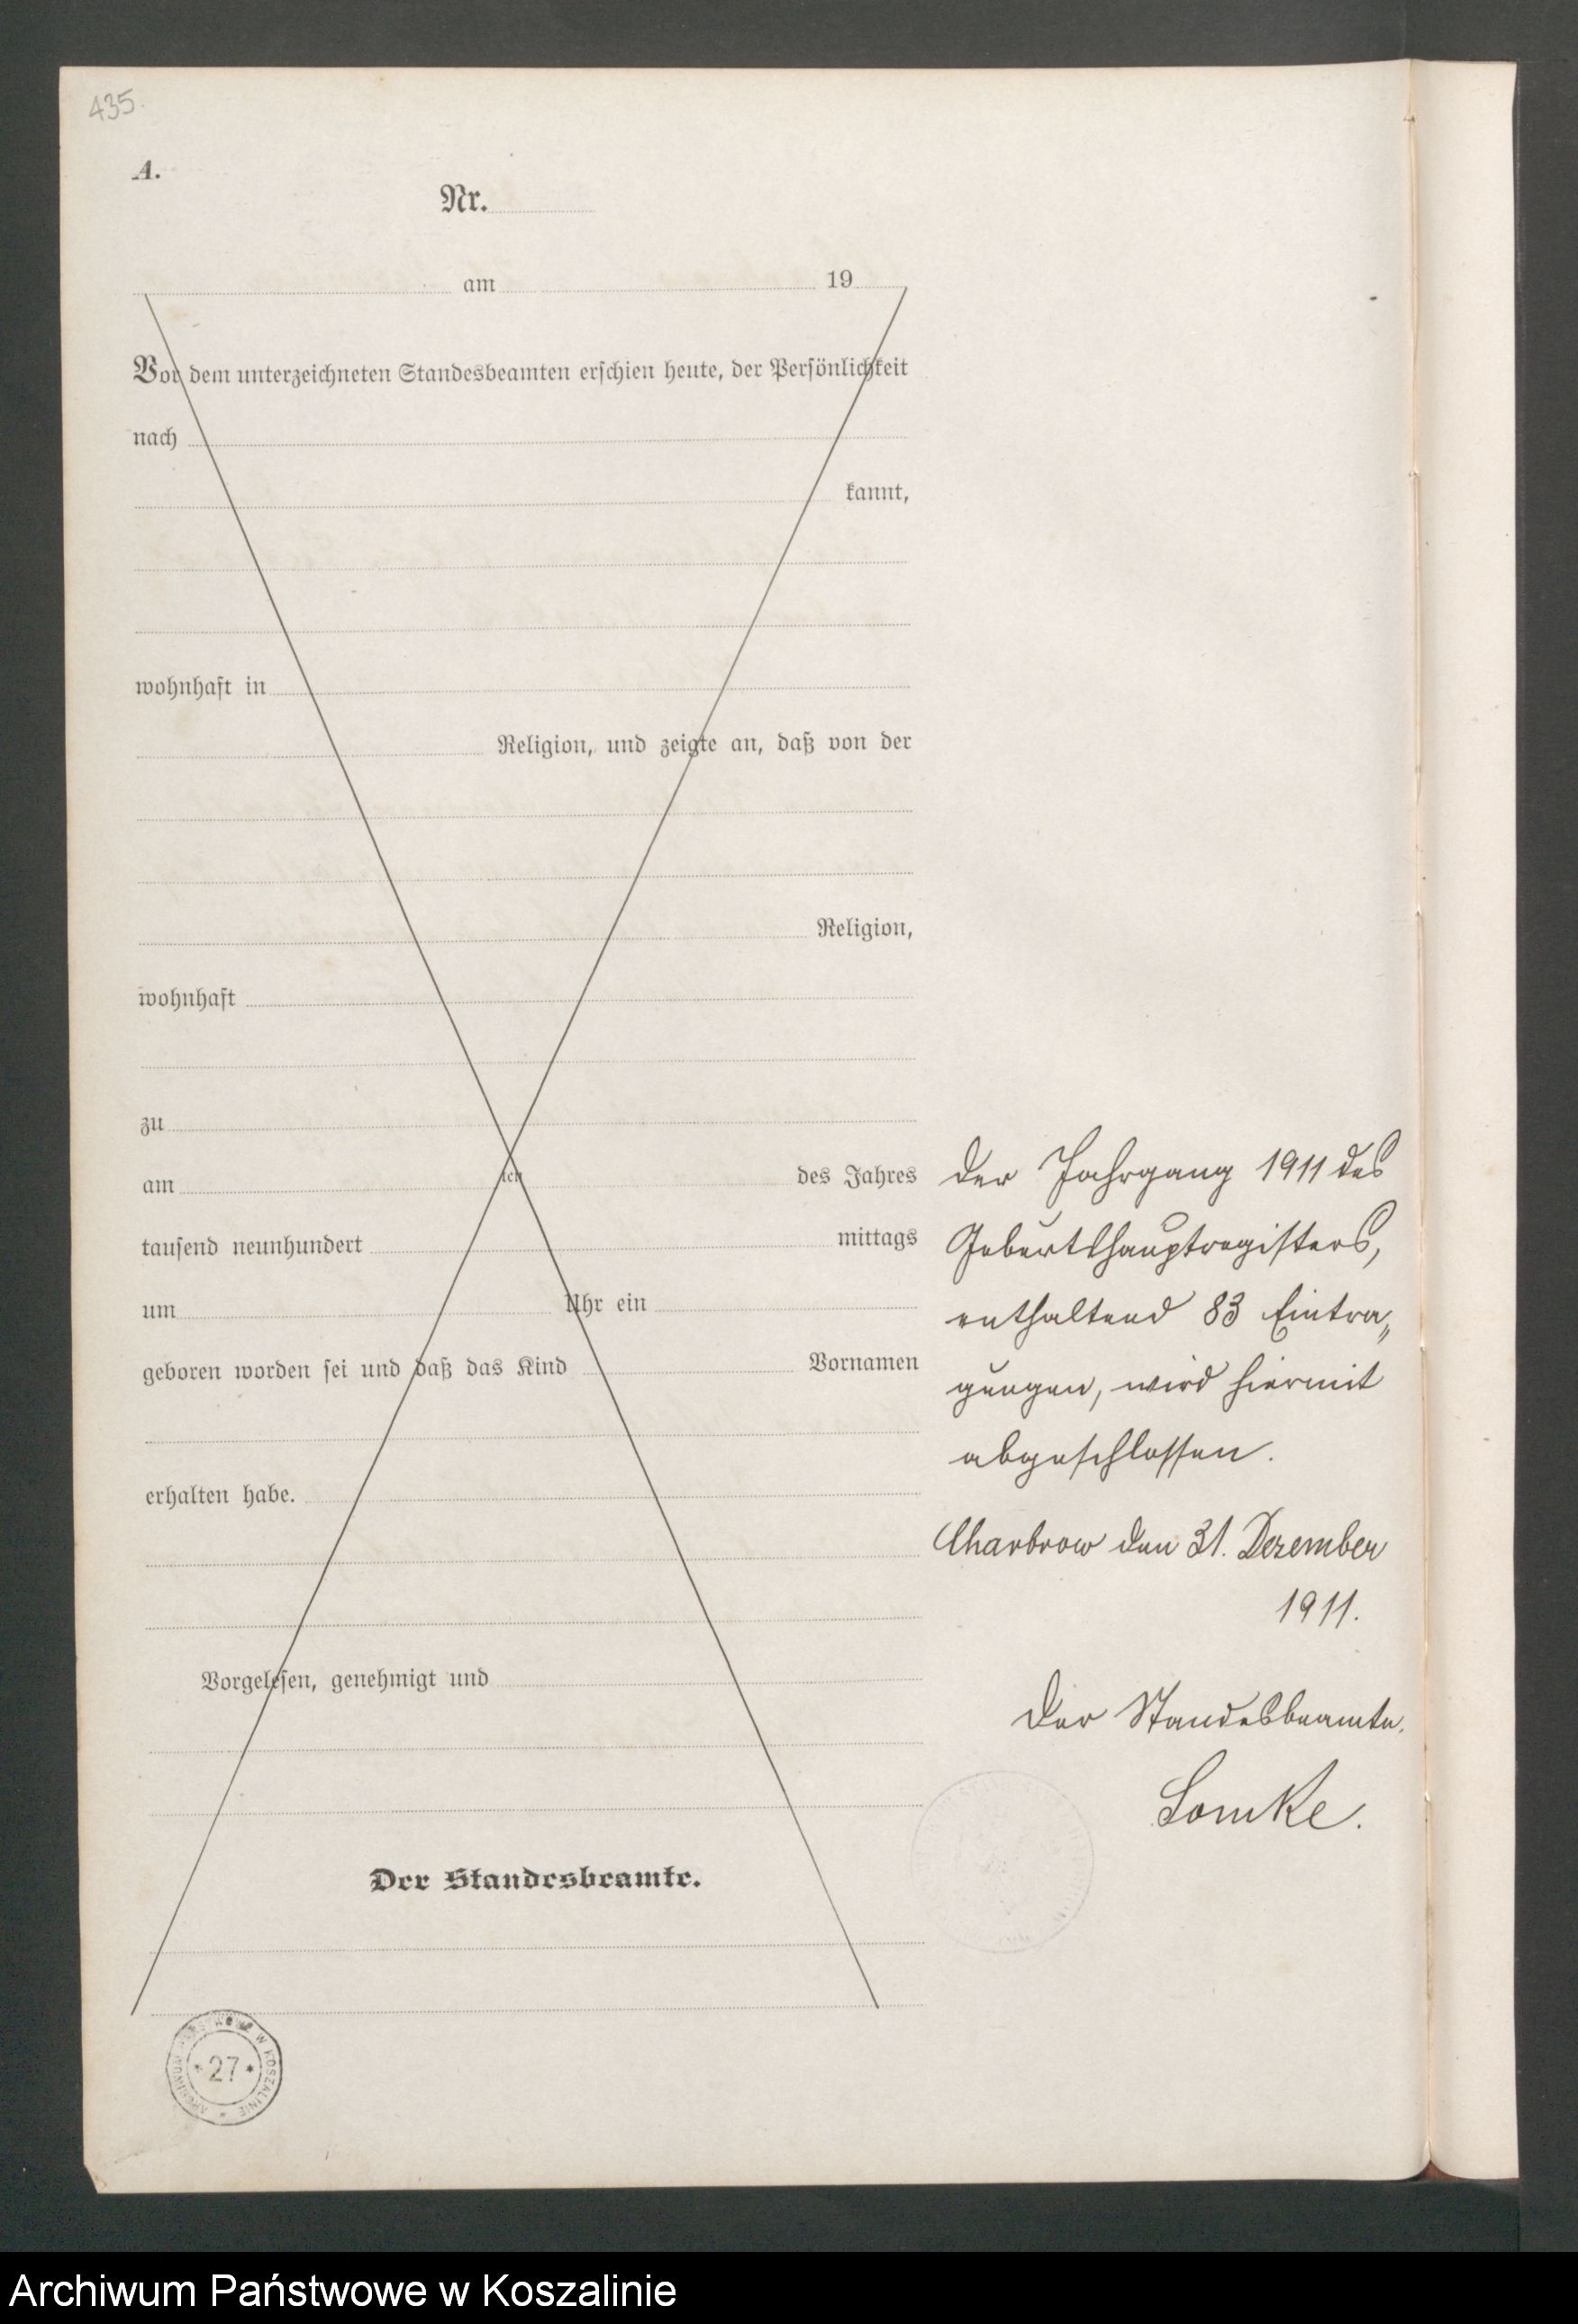 435.
A.
Nr.
am 19
Vor dem unterzeichneten Standesbeamten erschien heute, der Persönlichkeit
nach
kannt,
wohnhaft in
Religion, und zeigte an, daß von der
Religion,
wohnhaft
zu
am ten des Jahres
tausend neunhundert mittags
um Uhr ein
geboren worden sei und daß das Kind Vornamen
erhalten habe.
Vorgelesen, genehmigt und
Der Standesbeamte.
Der Jahrgang 1911 des
Geburtshauptregisters,
enthaltend 83 Eintra„
gungen, wird hiermit
abgeschlossen.
Charbrow den 31. Dezember
1911.
Der Standesbeamte.
ARCHIWUM PAŃSTWOWE W KOSZALINIE
* 27 *
Archiwum Państwowe w Koszalinie